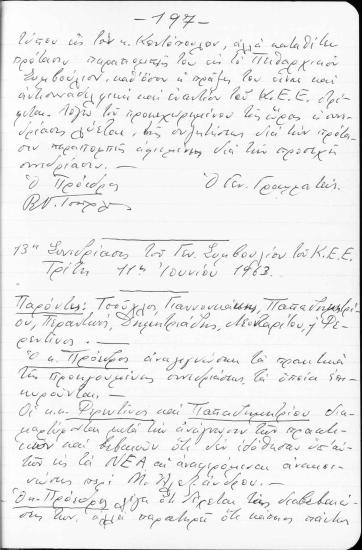 -197-
τύπου εἰς τὸν κ. Κοντόπουλον, ἀλλὰ καταθέτει
πρότασιν παραπομπῆς του εἰς τὸ Πειθαρχικὸν
Συμβούλιον, καθ' ὅσον ἡ πρᾶξις του εἶναι καὶ
ἀντισυναδελφικὴ καὶ ἐναντίον τοῦ Κ.Ε.Ε. στρέ-
φεται. Λόγῳ τοῦ προκεχωρημένου τῆς ὥρας ἡ συνε-
δρίασις λύεται, τῆς συζητήσεως διὰ τὴν πρότα-
σιν παραπομπῆς ἀφιεμένης διὰ τὴν προσεχῆ
συνεδρίασιν.—
Ὁ Πρόεδρος Ὁ Γεν. Γραμματεύς.
13η Συνεδρίασις τοῦ Γεν. Συμβουλίου τοῦ Κ.Ε.Ε.
Τρίτη 11η Ἰουνίου 1963.
Παρόντες: Τσούχλος, Γιαννουκάκης, Παπαδημητρί-
ου, Περαντινός, Δημητριάδης, Φε-
ρεντῖνος.—
Ὁ κ. Πρόεδρος ἀναγιγνώσκει τὰ πρακτικὰ
τῆς προηγουμένης συνεδριάσεως τὰ ὁποῖα ἐπι-
κυροῦνται.—
Οἱ κ.κ. Φερεντῖνος καὶ Παπαδημητρίου δια-
μαρτύρονται μετὰ τὴν ἀνάγνωσιν τῶν πρακτι-
κῶν καὶ ὅτι δὲν ἐδόθησαν ὑπ' αὐ-
τῶν εἰς τὰ ΝΕΑ αἱ ἀναφερόμεναι ἀνακοι-
νώσεις περὶ Μ. Ἀλεξάνδρου.—
Ὁ κ. Πρόεδρος λέγει ὅτι δέχεται τὰς διαβεβαιώ-
σεις των, ἀλλὰ παρατηρεῖ ὅτι κάποιος πάντως